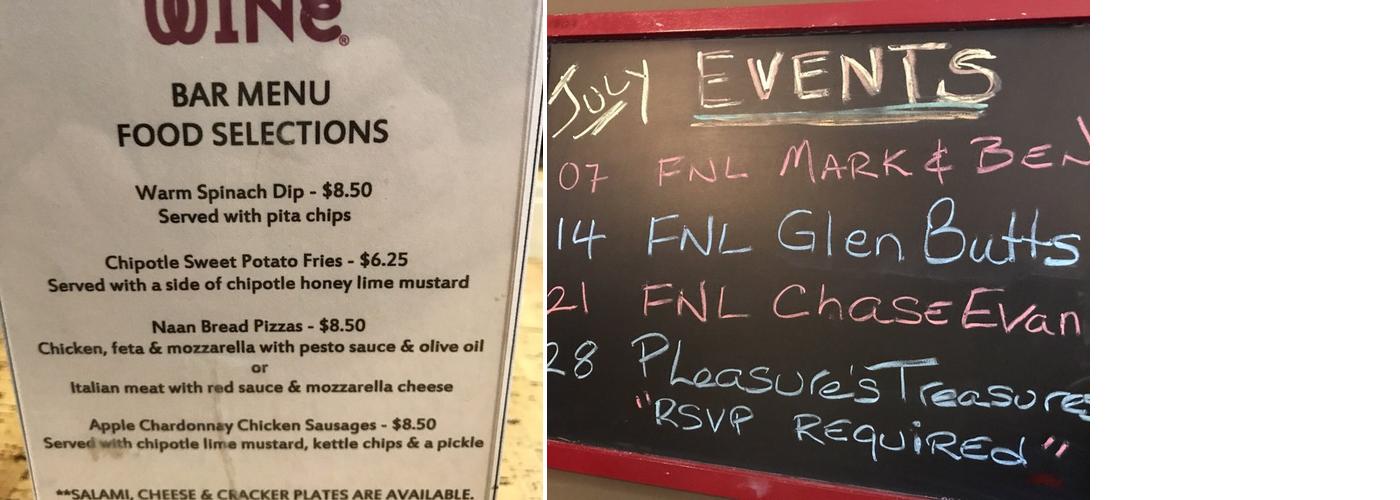 WINe®
BAR MENU
FOOD SELECTIONS
Warm Spinach Dip - $8.50
Served with pita chips
Chipotle Sweet Potato Fries - $6.25
Served with a side of chipotle honey lime mustard
Naan Bread Pizzas - $8.50
Chicken, feta & mozzarella with pesto sauce & olive oil
or
Italian meat with red sauce & mozzarella cheese
Apple Chardonnay Chicken Sausages - $8.50
Served with chipotle lime mustard, kettle chips & a pickle
**SALAMI, CHEESE & CRACKER PLATES ARE AVAILABLE.
JULY EVENTS
07 FNL MARK & BEN
14 FNL Glen Butts
21 FNL Chase Evan
28 Pleasure's Treasures
"RSVP REQUIRED"